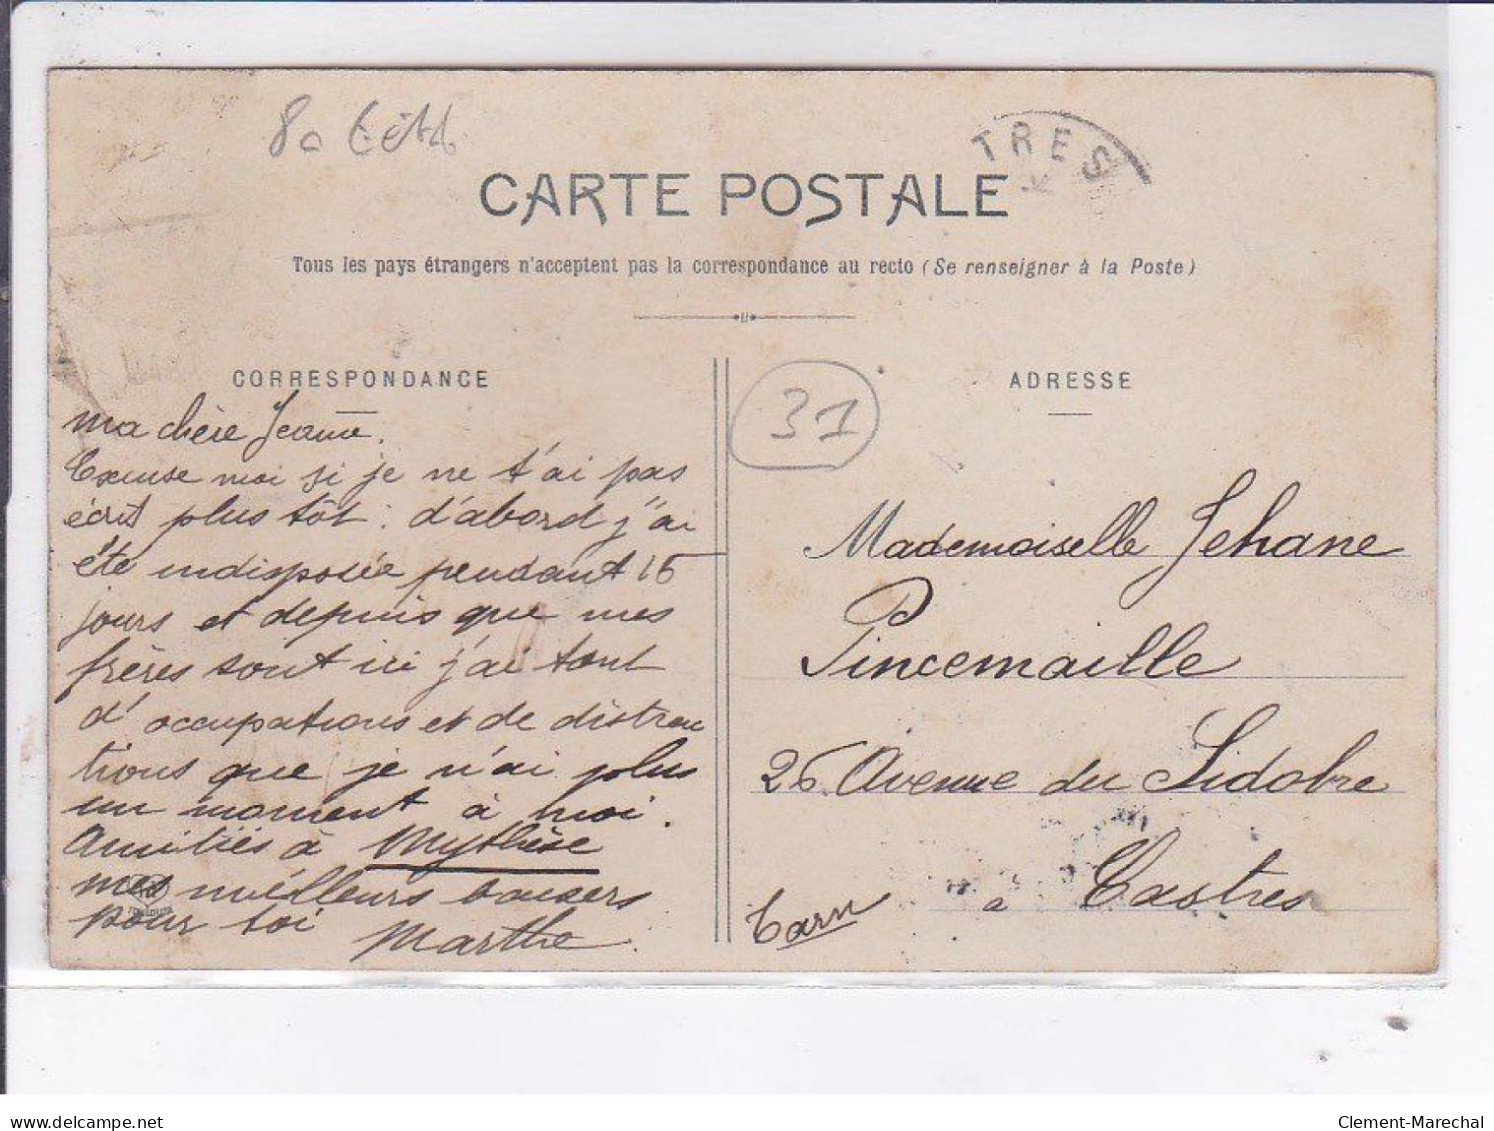 TRES
CARTE POSTALE
Tous les pays étrangers n'acceptent pas la correspondance au recto (Se renseigner à la Poste)
CORRESPONDANCE
ma chère Jeanne.
Excuse moi si je ne t'ai pas
écrit plus tôt: d'abord j'ai
été indisposée pendant 15
jours et depuis que mes
frères sont ici j'ai tant
d'occupations et de distrac
tions que je n'ai plus
un moment à moi.
Amitiés à Mythèse
mes meilleurs baisers
pour toi
Marthe
31
ADRESSE
Mademoiselle Jehane
Pincemaille
26 Avenue du Sidobre
à Castres
Tarn
delcampe.net
Clement-Marechal